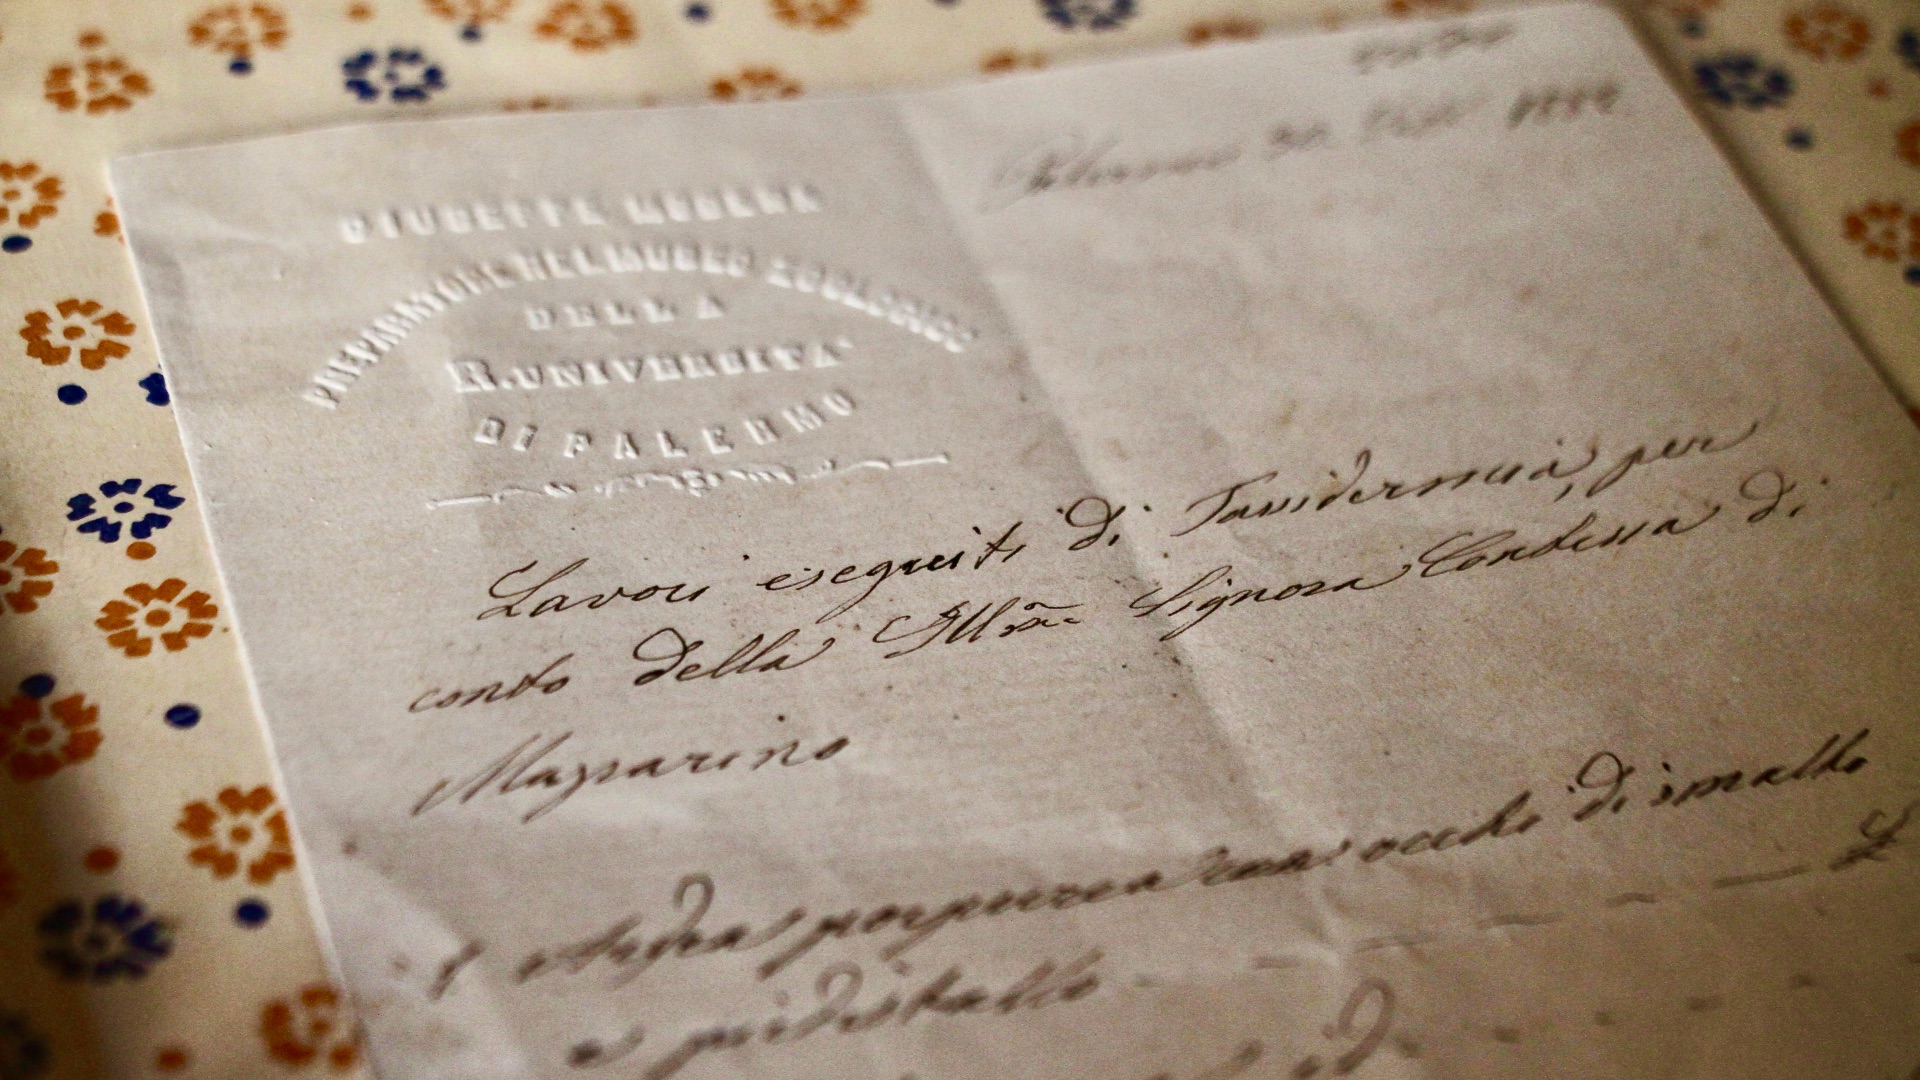 GIUSEPPE MODENA
PREPARATORE NEL MUSEO ZOOLOGICO
DELLA
R. UNIVERSITA'
DI PALERMO
Palermo 30
Lavori eseguiti di Tassidermia, per
conto della Illma Signora Contessa di
Mazzarino
1 Ardea porpurea con occhi di smalto
e piedistallo £
id